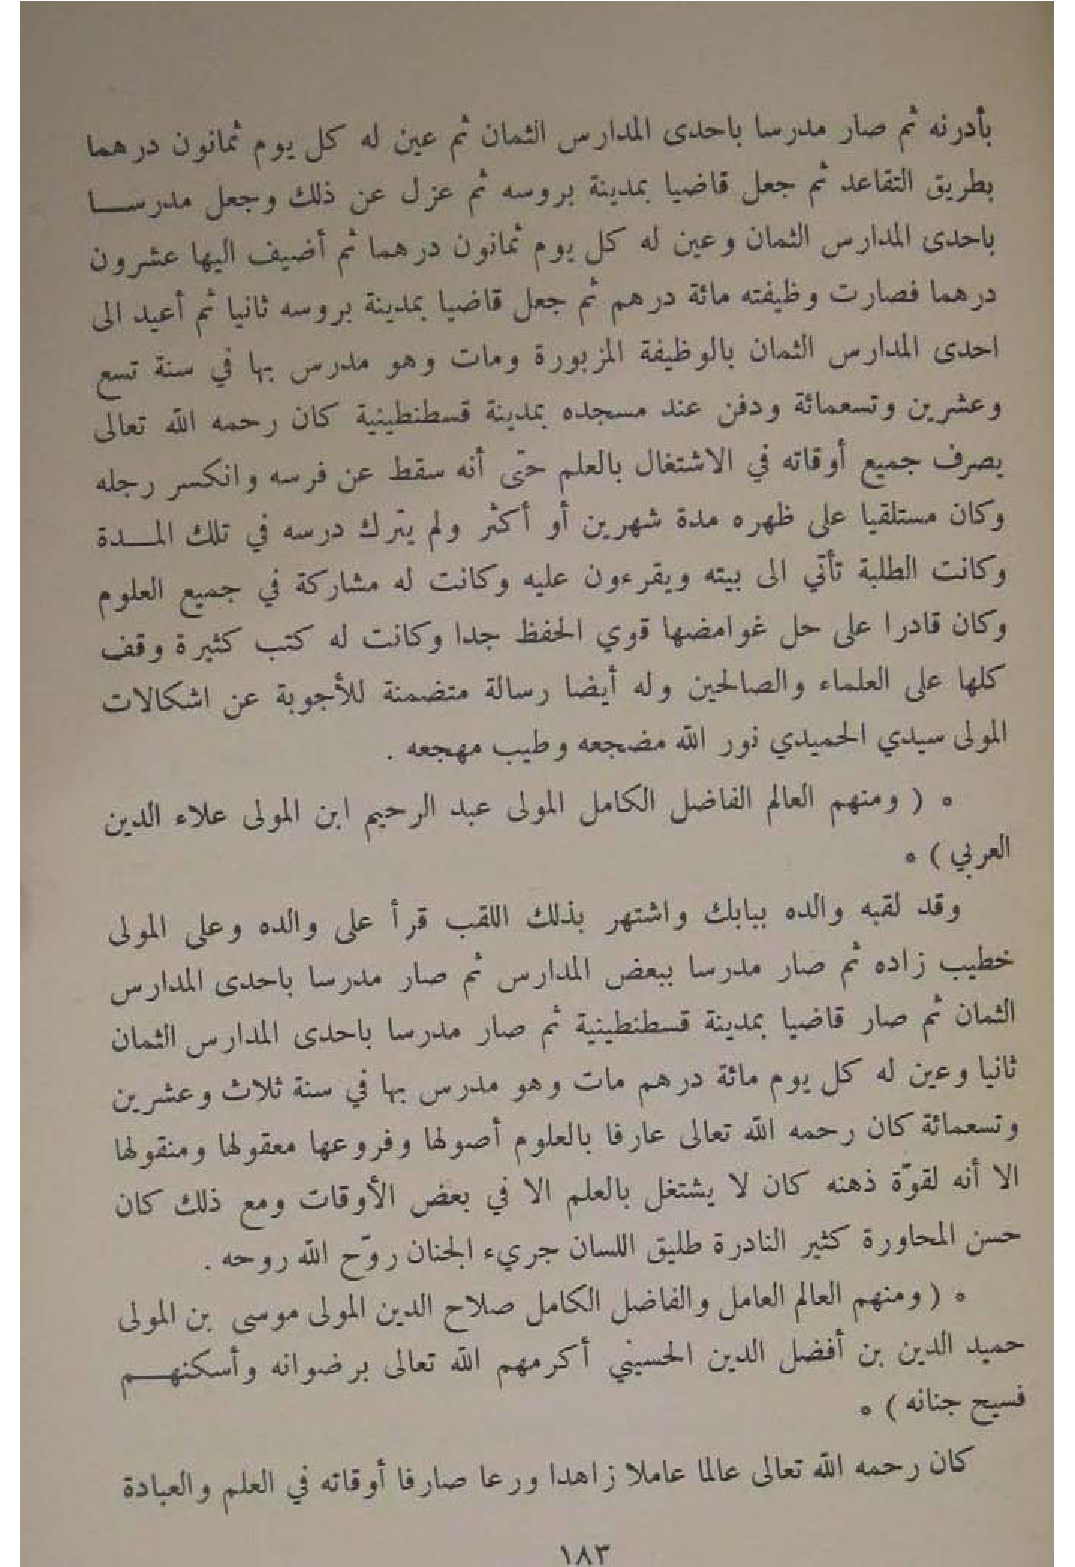 بأدرنه ثم صار مدرسا باحدى المدارس الثمان ثم عين له كل يوم ثمانون درهما
بطريق التقاعد ثم جعل قاضيا بمدينة بروسه ثم عزل عن ذلك وجعل مدرسا
باحدى المدارس الثمان وعين له كل يوم ثمانون درهما ثم أضيف اليها عشرون
درهما فصارت وظيفته مائة درهم ثم جعل قاضيا بمدينة بروسه ثانيا ثم أعيد الى
احدى المدارس الثمان بالوظيفة المزبورة ومات وهو مدرس بها في سنة تسع
وعشرين وتسعمائة ودفن عند مسجده بمدينة قسطنطينية كان رحمه الله تعالى
يصرف جميع أوقاته في الاشتغال بالعلم حتى أنه سقط عن فرسه وانكسر رجله
وكان مستلقيا على ظهره مدة شهرين أو أكثر ولم يترك درسه في تلك المدة
وكانت الطلبة تأتي الى بيته ويقرءون عليه وكانت له مشاركة في جميع العلوم
وكان قادرا على حل غوامضها قوي الحفظ جدا وكانت له كتب كثيرة وقف
كلها على العلماء والصالحين وله أيضا رسالة متضمنة للأجوبة عن اشكالات
المولى سيدي الحميدي نور الله مضجعه وطيب مهجعه .
* ( ومنهم العالم الفاضل الكامل المولى عبد الرحيم ابن المولى علاء الدين
العربي ) *
وقد لقبه والده ببابك واشتهر بذلك اللقب قرأ على والده وعلى المولى
خطيب زاده ثم صار مدرسا ببعض المدارس ثم صار مدرسا باحدى المدارس
الثمان ثم صار قاضيا بمدينة قسطنطينية ثم صار مدرسا باحدى المدارس الثمان
ثانيا وعين له كل يوم مائة درهم مات وهو مدرس بها في سنة ثلاث وعشرين
وتسعمائة كان رحمه الله تعالى عارفا بالعلوم أصولها وفروعها معقولها ومنقولها
الا أنه لقوّة ذهنه كان لا يشتغل بالعلم الا في بعض الأوقات ومع ذلك كان
حسن المحاورة كثير النادرة طليق اللسان جريء الجنان روّح الله روحه .
* ( ومنهم العالم العامل والفاضل الكامل صلاح الدين المولى موسى بن المولى
حميد الدين بن أفضل الدين الحسيني أكرمهم الله تعالى برضوانه وأسكنهم
فسيح جنانه ) *
كان رحمه الله تعالى عالما عاملا زاهدا ورعا صارفا أوقاته في العلم والعبادة
١٨٣